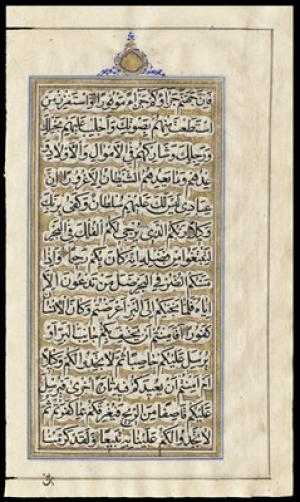 فان جهنم جزاؤكم جزاء موفورا واستفزز من
استطعت منهم بصوتك واجلب عليهم بخيلك
ورجلك وشاركهم في الاموال والاولاد و
عدهم وما يعدهم الشيطان الا غرورا ان
عبادي ليس لك عليهم سلطان وكفى بربك
وكيلا ربكم الذي يزجي لكم الفلك في البحر
لتبتغوا من فضله انه كان بكم رحيما واذا
مسكم الضر في البحر ضل من تدعون الا
اياه فلما نجيكم الى البر اعرضتم وكان الانسان
كفورا افامنتم ان يخسف بكم جانب البر او
يرسل عليكم حاصبا ثم لا تجدوا لكم وكيلا
ام امنتم ان يعيدكم فيه تارة اخرى فيرسل
عليكم قاصفا من الريح فيغرقكم بما كفرتم ثم
لا تجدوا لكم علينا به تبيعا ولقد كرمنا